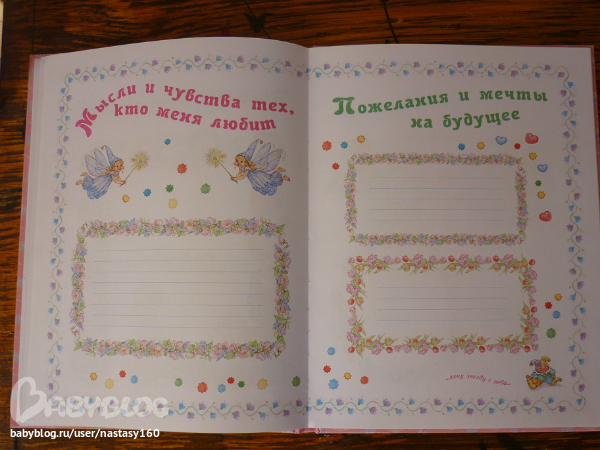 Мысли и чувства тех,
кто меня любит
Пожелания и мечты
на будущее
BABYBLOG
babyblog.ru/user/nastasy160